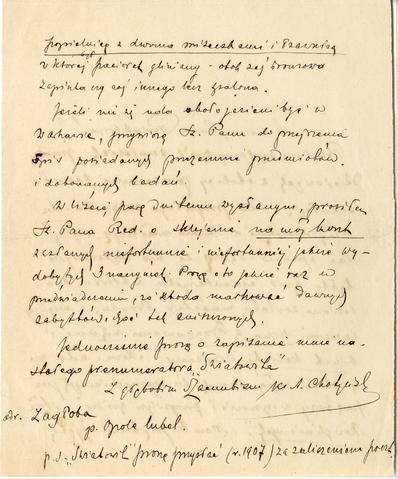 popielnicę z dwoma miseczkami i czarnią
w której paciorek gliniany - obok zaś bronzowa
zapinka czy coś innego bez
Jeżeli mi się uda około jesieni być w
Warszawie, przywiozę Sz. Panu do przejrzenia
Spis posiadanych przezemnie przedmiotów
i dokonanych badań.
W liście parę dni temu wysłanym, prosiłem
Sz. Pana Red. o sklejenie na mój koszt
zesłanych niefortunnie i niefortunniej jeszcze wy-
dobytych naczyniek. Proszę o to jeszcze raz w
przeświadczeniu, że szkoda marnować dawnych
zabytków, choć tak zniszczonych.
Jednocześnie proszę o zapisanie mnie na
stałego prenumeratora "Światowita"
Z głębokim Szacunkiem ks. A. Chotyński
adr. Zagłoba
p. Opole lubel.
p.s. "Światowit" proszę przysłać (r. 1907) za zaliczeniem poczt.